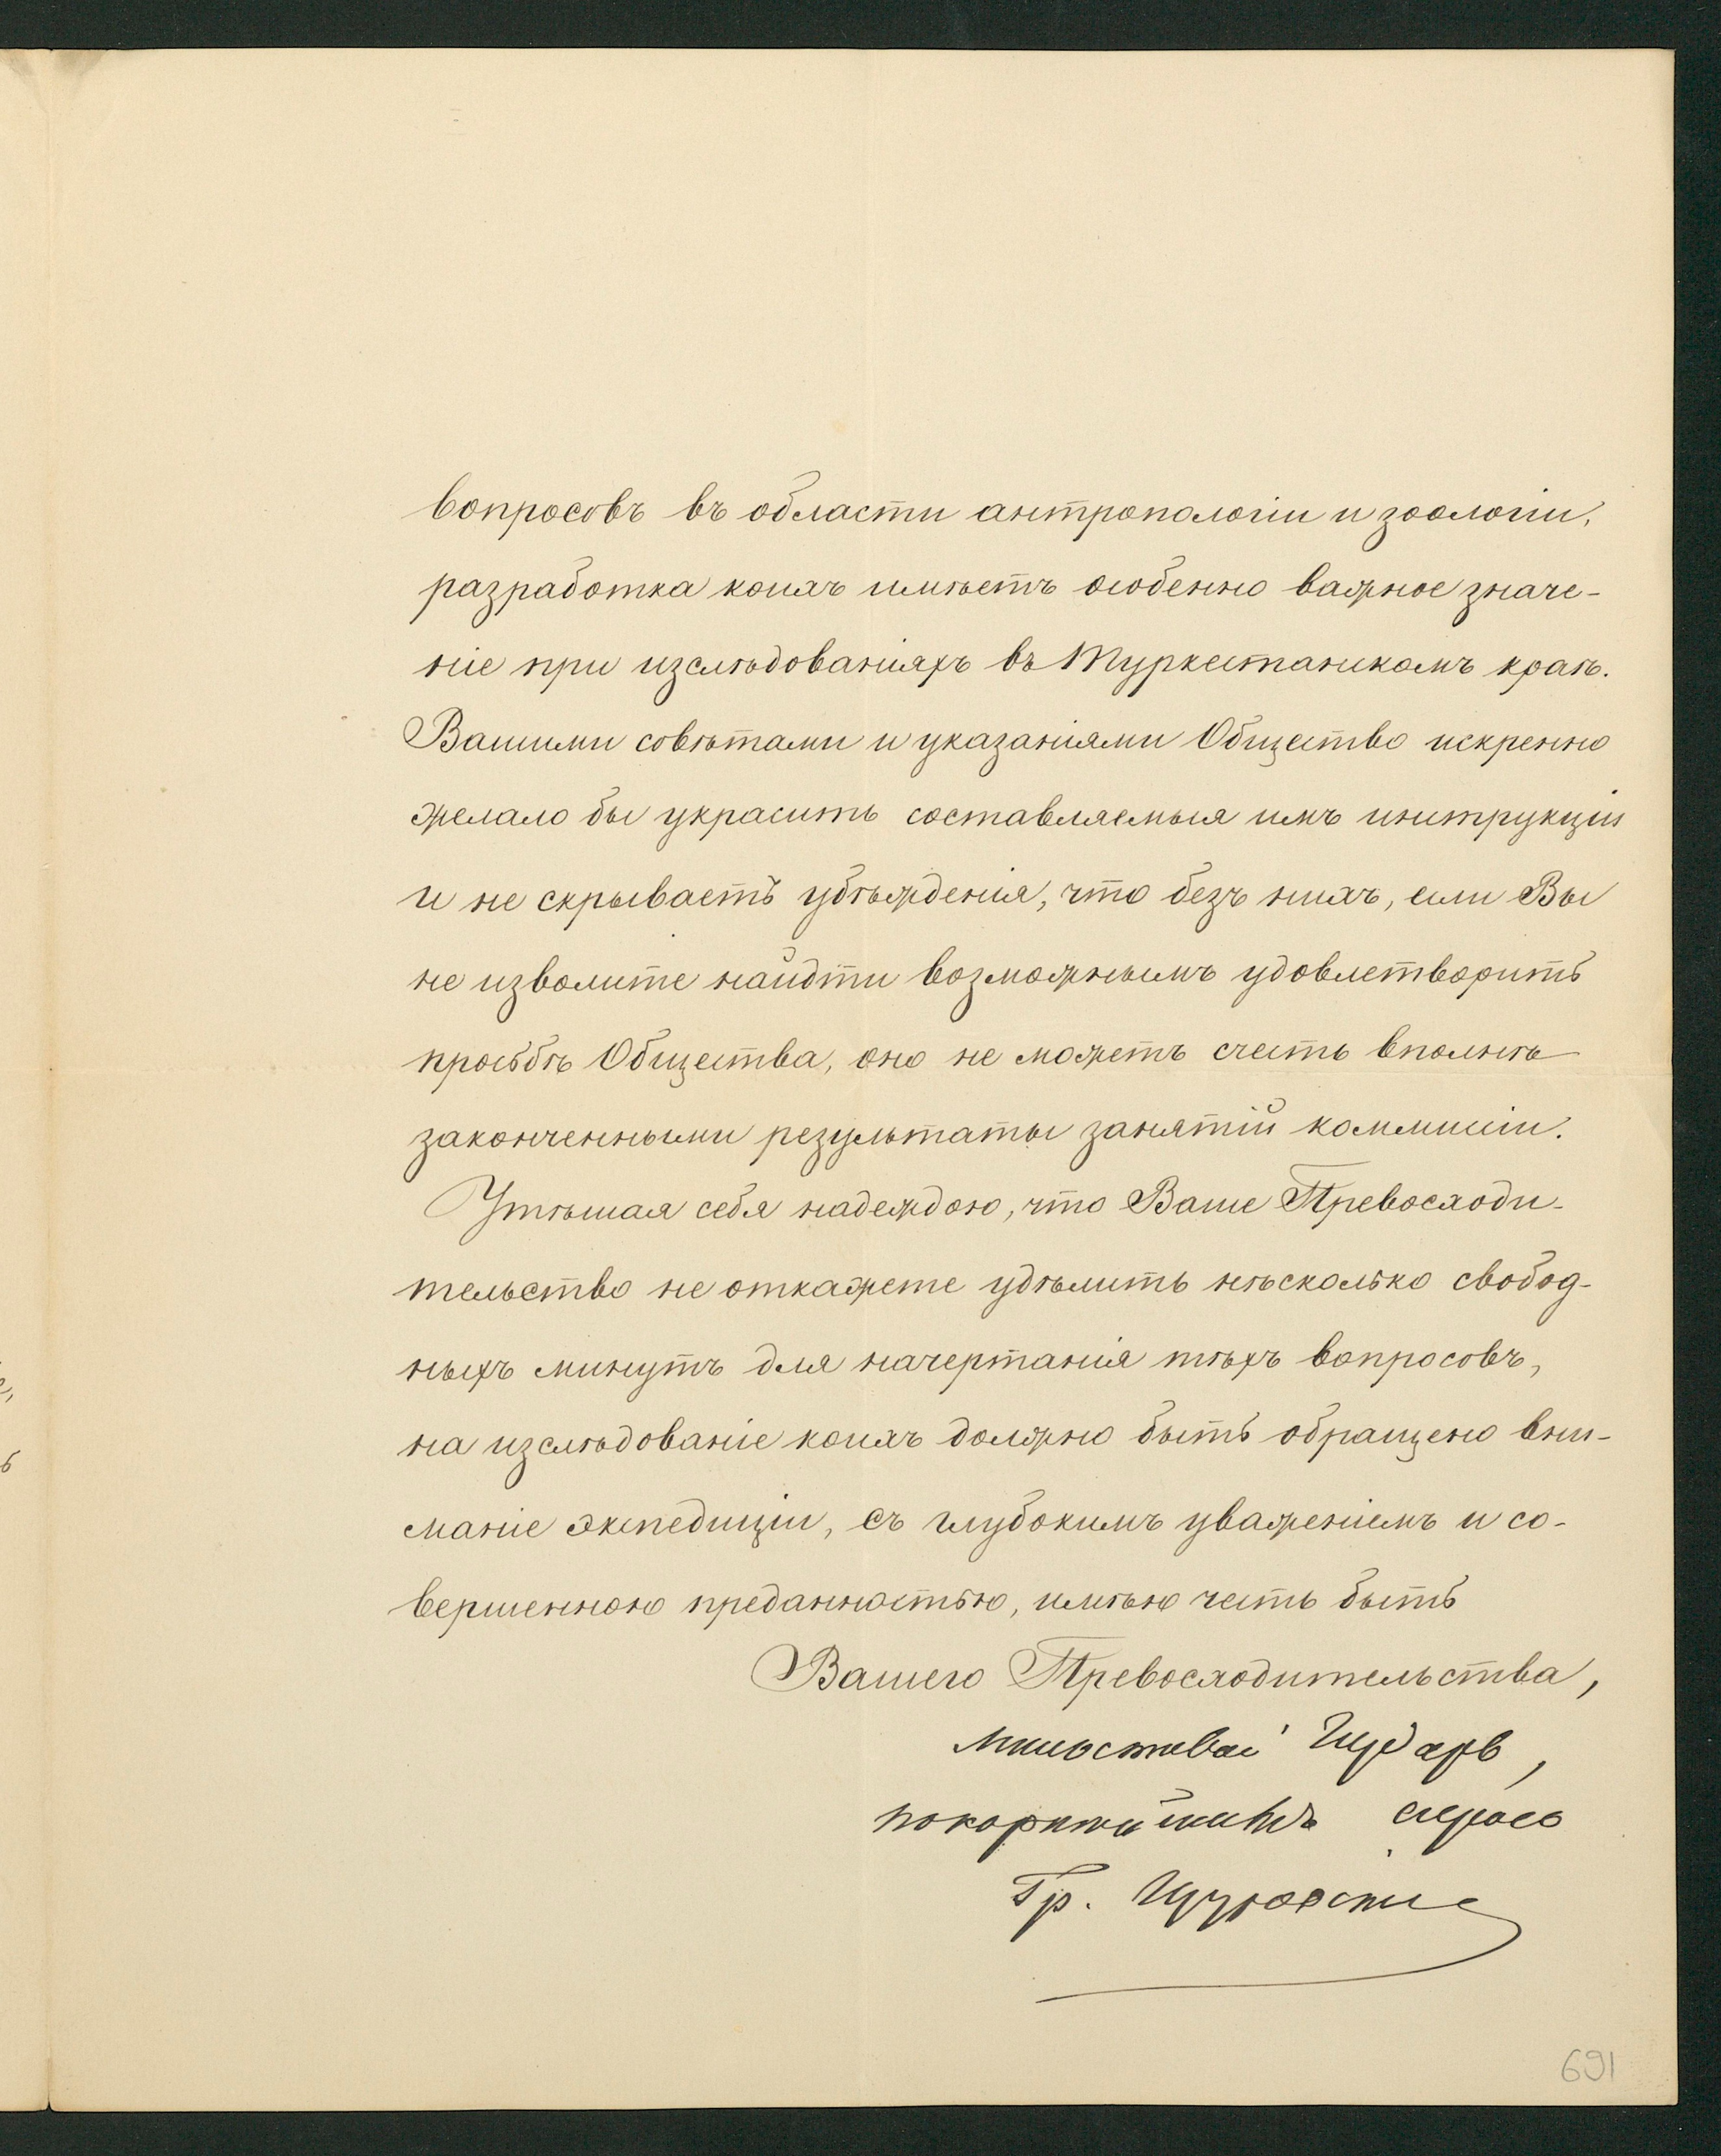 вопросовъ въ области антропологіи и зоологіи,
разработка коихъ имѣетъ особенно важное значе-
ніе при изслѣдованіяхъ въ Туркестанскомъ краѣ.
Вашими совѣтами и указаніями Общество искренно
желало бы украсить составляемыя имъ инструкціи
и не скрываетъ убѣжденія, что безъ нихъ, если Вы
не изволите найдти возможнымъ удовлетворить
просьбѣ Общества, оно не можетъ счесть вполнѣ
законченными результаты занятій коммиссіи.
Утѣшая себя надеждою, что Ваше Превосходи-
тельство не откажете удѣлить нѣсколько свобод-
ныхъ минутъ для начертанія тѣхъ вопросовъ,
на изслѣдованіе коихъ должно быть обращено вни-
маніе экспедиціи, съ глубокимъ уваженіемъ и со-
вершенною преданностью, имѣю честь быть
Вашего Превосходительства,
Милостивый Государь,
покорнѣйшимъ слугою
Гр. Щуровскій
691